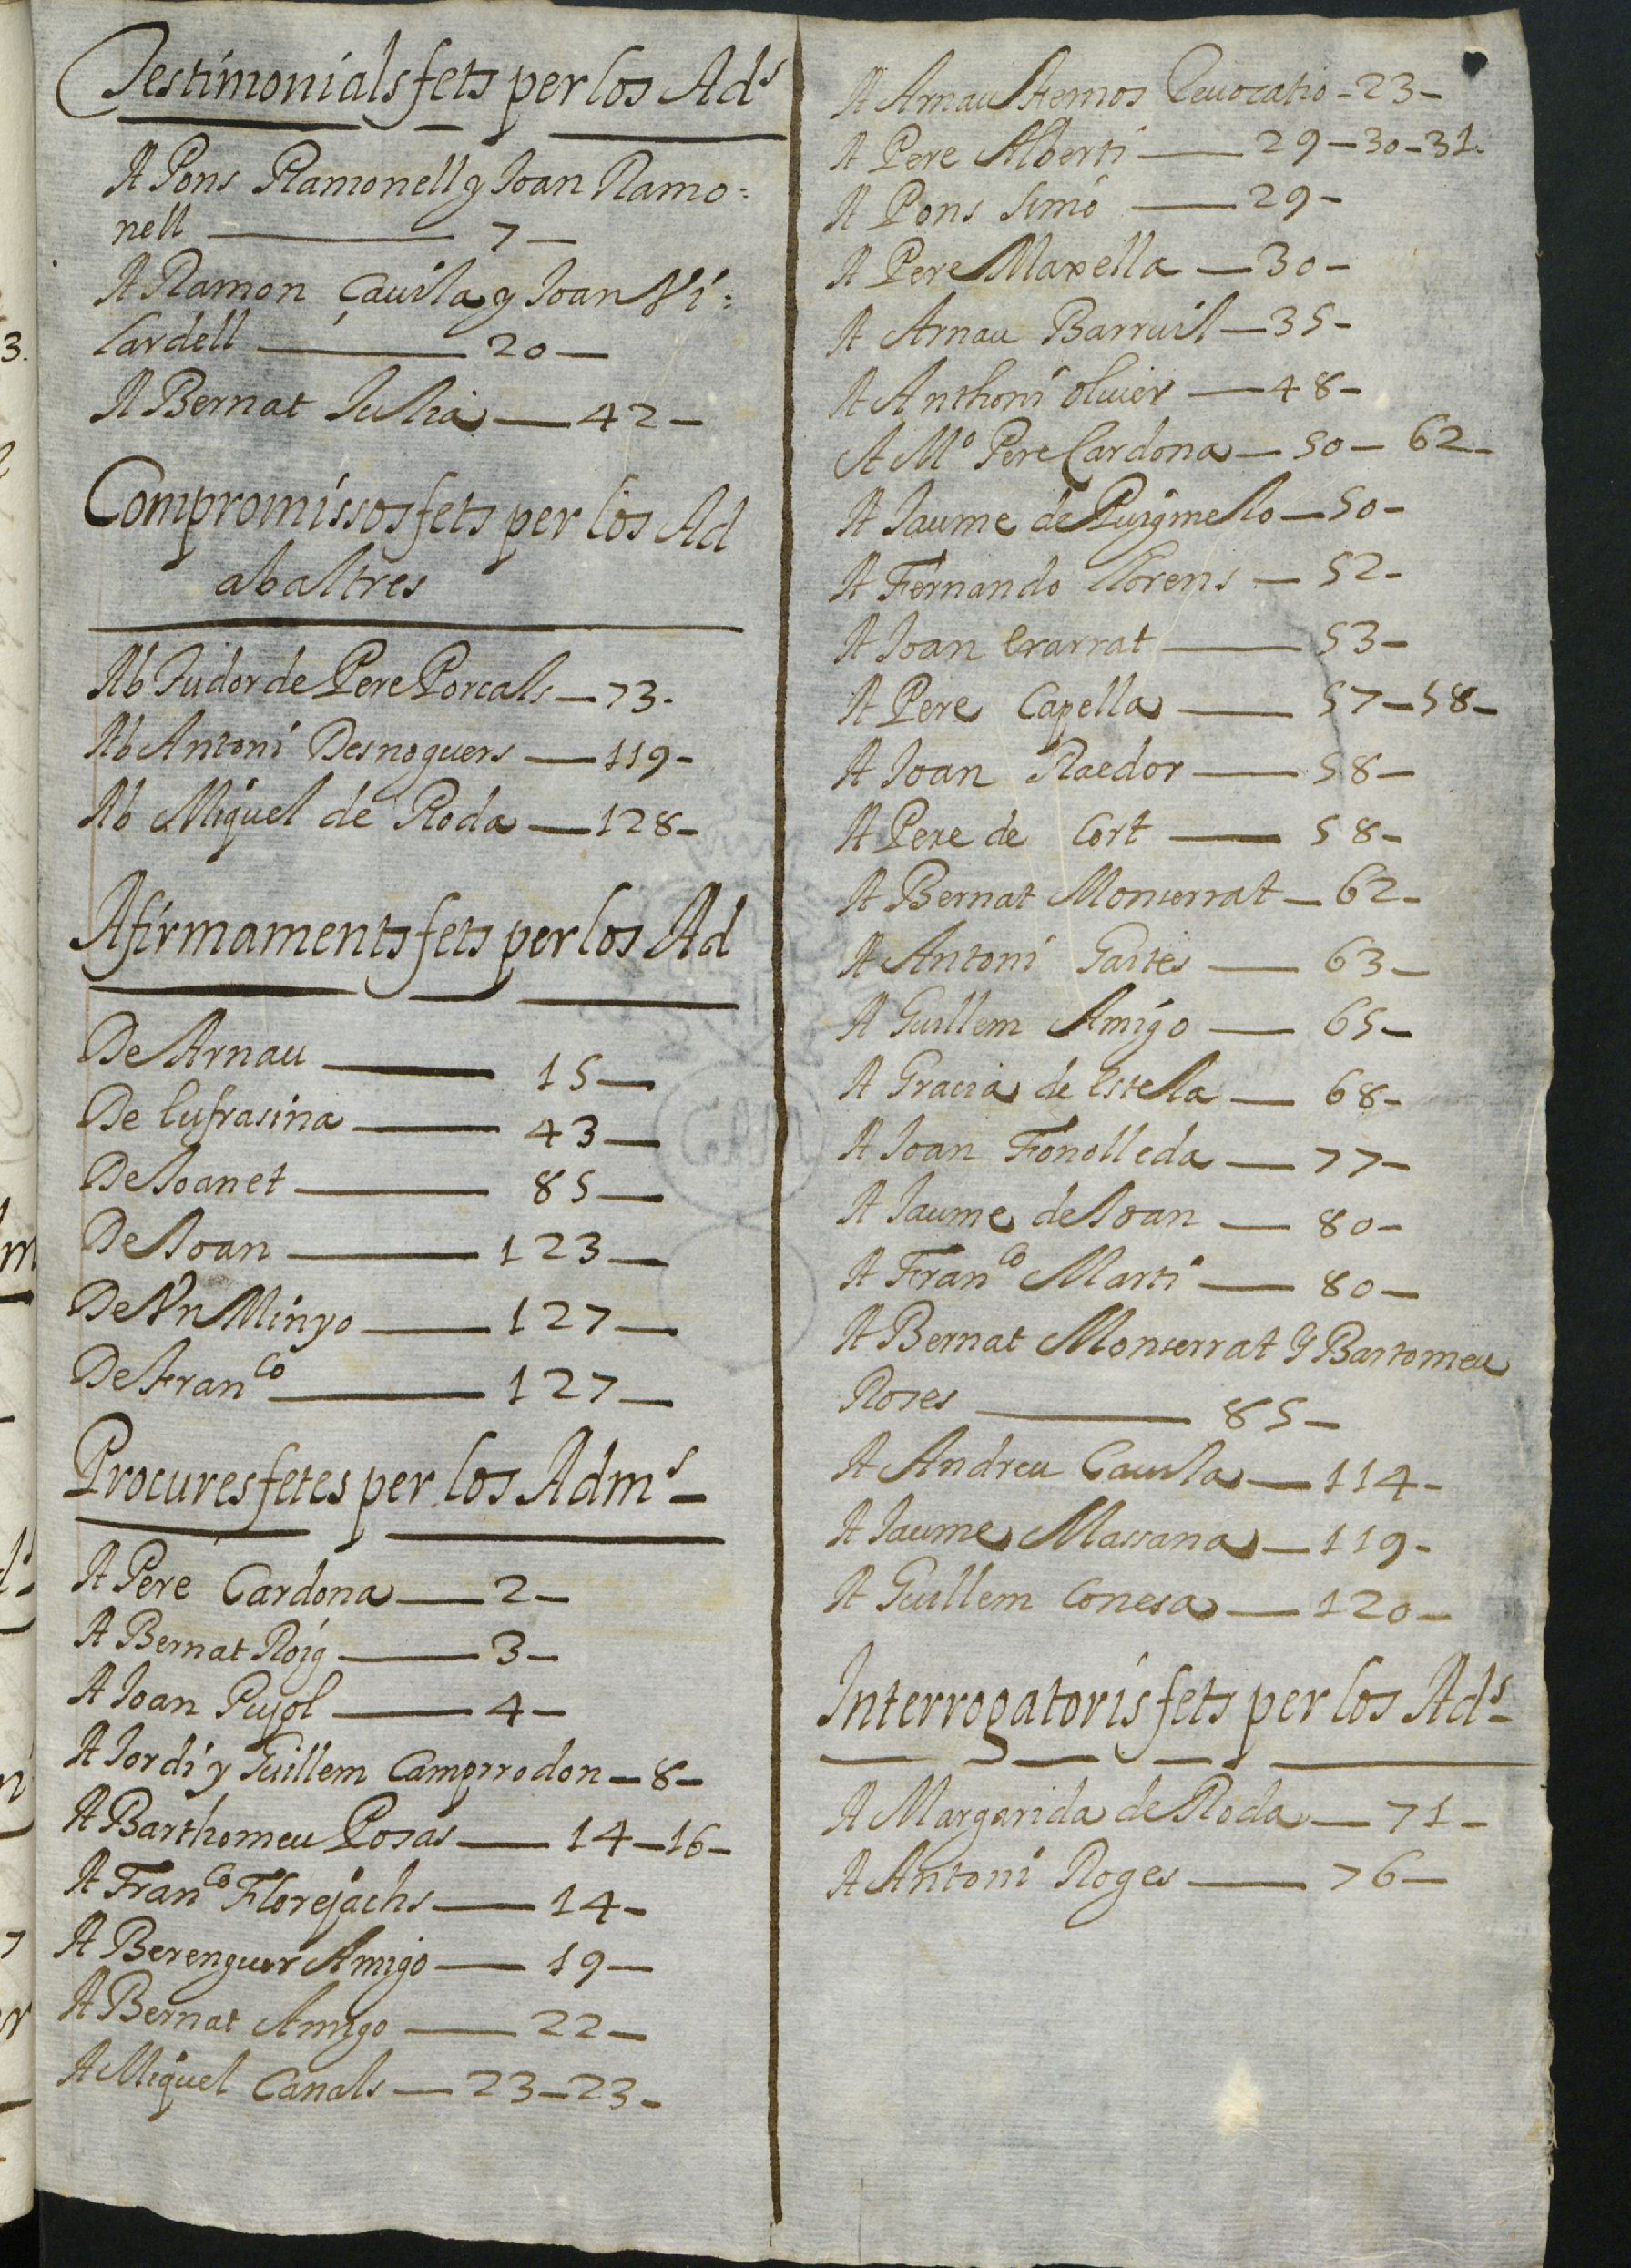 Testimonials fets per los Ad.s
A Pons Ramonell y Joan Ramo=
nell — 7 —
A Ramon Çavila y Joan Vi=
lardell — 20 —
A Bernat Julia — 42 —
Compromissos fets per los Ad
ab altres
Ab Tudor de Pere Porcals — 73.
Ab Antoni Desnoguers — 119 -
Ab Miquel de Roda — 128 -
Afirmaments fets per los Ad
De Arnau — 15 —
De Eufrasina — 43 —
De Joanet — 85 —
De Joan — 123 —
De Vn Minyo — 127 —
De Franco — 127 —
Procures fetes per los Adms —
A Pere Cardona — 2 —
A Bernat Roig — 3 —
A Joan Pujol — 4 —
A Jordi y Guillem Camprrodon — 8 —
A Barthomeu Posas — 14 — 16 —
A Franco Florejachs — 14 —
A Berenguer Amigo — 19 —
A Bernat Amigo — 22 —
A Miquel Canals — 23 — 23 —
A Arnau Revocatio - 23 -
A Pere Alberti — 29 — 30 - 31.
A Pons Simo — 29 -
A Pere Maxella — 30 -
A Arnau Barruil — 35 -
A Anthoni Oliuer — 48 -
A Mo Pere Cardona — 50 — 62 -
A Jaume de Puigmello — 50 -
A Fernando Llorens — 52 -
A Joan — 53 -
A Pere Capella — 57 — 58 -
A Joan Raedor — 58 —
A Pere de Cort — 58 -
A Bernat Monserrat — 62 -
A Antoni — 63 —
A Guillem Amigo — 65 —
A Gracia de Estella — 68 -
A Joan Fonolleda — 77 -
A Jaume de Joan — 80 -
A Franco Marti — 80 —
A Bernat Monserrat y Bartomeu
Roses — 85 —
A Andreu Cauila — 114 -
A Jaume Massana — 119 -
A Guillem Conesa — 120 —
Interrogatoris fets per los Ads -
A Margarida de Roda — 71 -
A Antoni Roges — 76 —